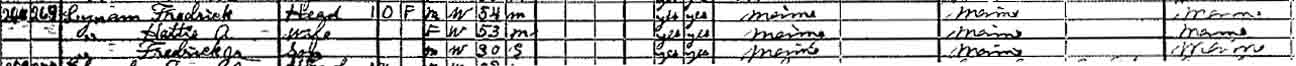 269 Lynam Fredrick Head 1 O F M W 54 M yes yes Maine Maine Maine
" Hattie A wife F W 53 M yes yes Maine Maine Maine
" Fredrick Jr son M W 30 S yes yes Maine Maine Maine